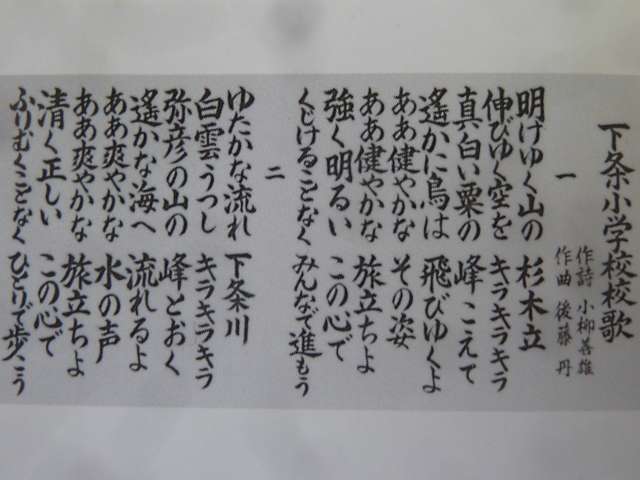 下条小学校校歌
作詩 小柳善雄
作曲 後藤 丹
一
明けゆく山の 杉木立
伸びゆく空を キラキラキラ
真白い粟の 峰こえて
遙かに鳥は 飛びゆくよ
ああ健やかな その姿
ああ健やかな 旅立ちよ
強く明るい この心で
くじけることなく みんなで進もう
二
ゆたかな流れ 下条川
白雲うつし キラキラキラ
弥彦の山の 峰とおく
遙かな海へ 流れるよ
ああ爽やかな 水の声
ああ爽やかな 旅立ちよ
清く正しい この心で
ふりむくことなく ひとりで歩こう